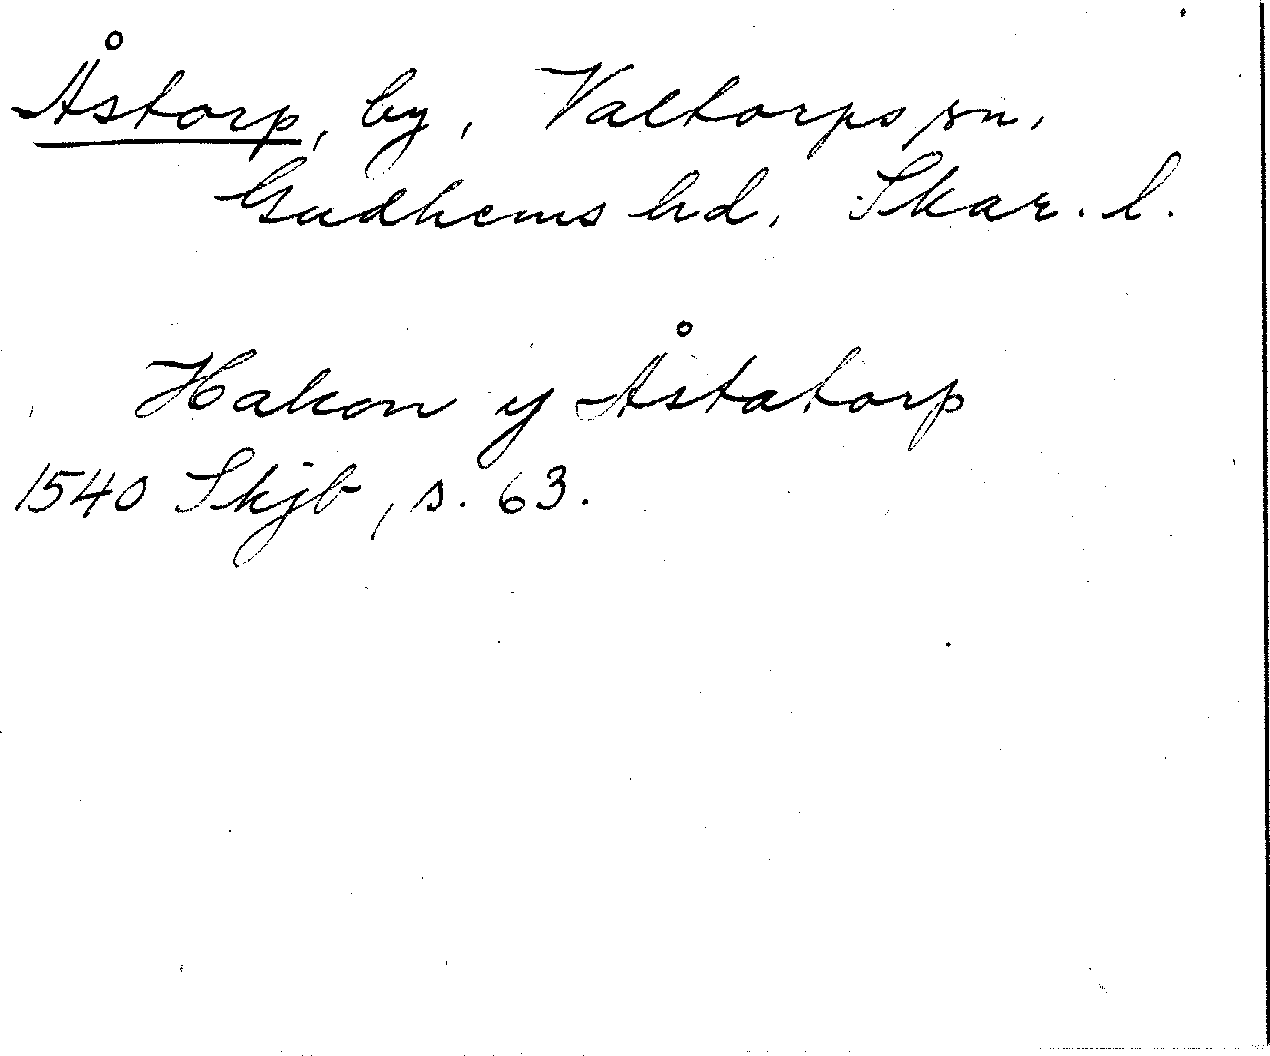 Åstorp, by, Valtorps sn,
Gudhems hd, Skar. l.
Hakon y Åstatorp
1540 Skjb, s. 63.